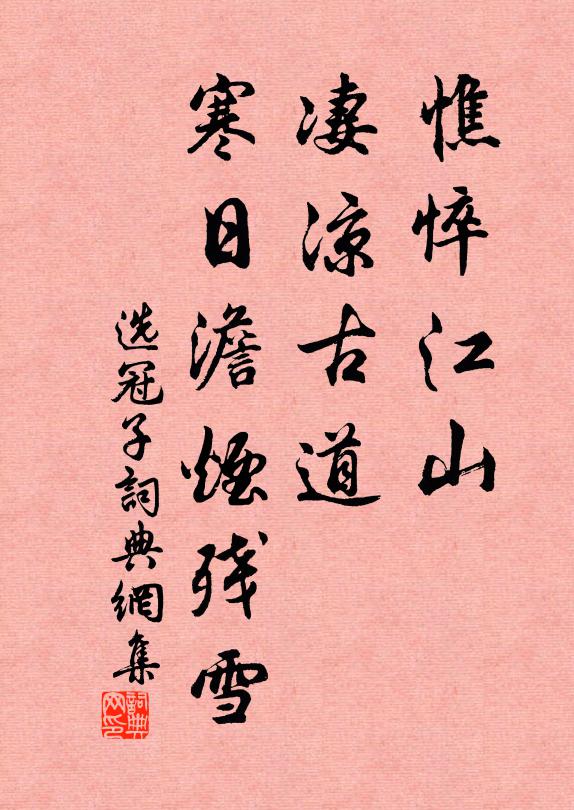 憔悴江山
凄凉古道
寒日澹煙残雪
选冠子詞典網集
詞典
网印